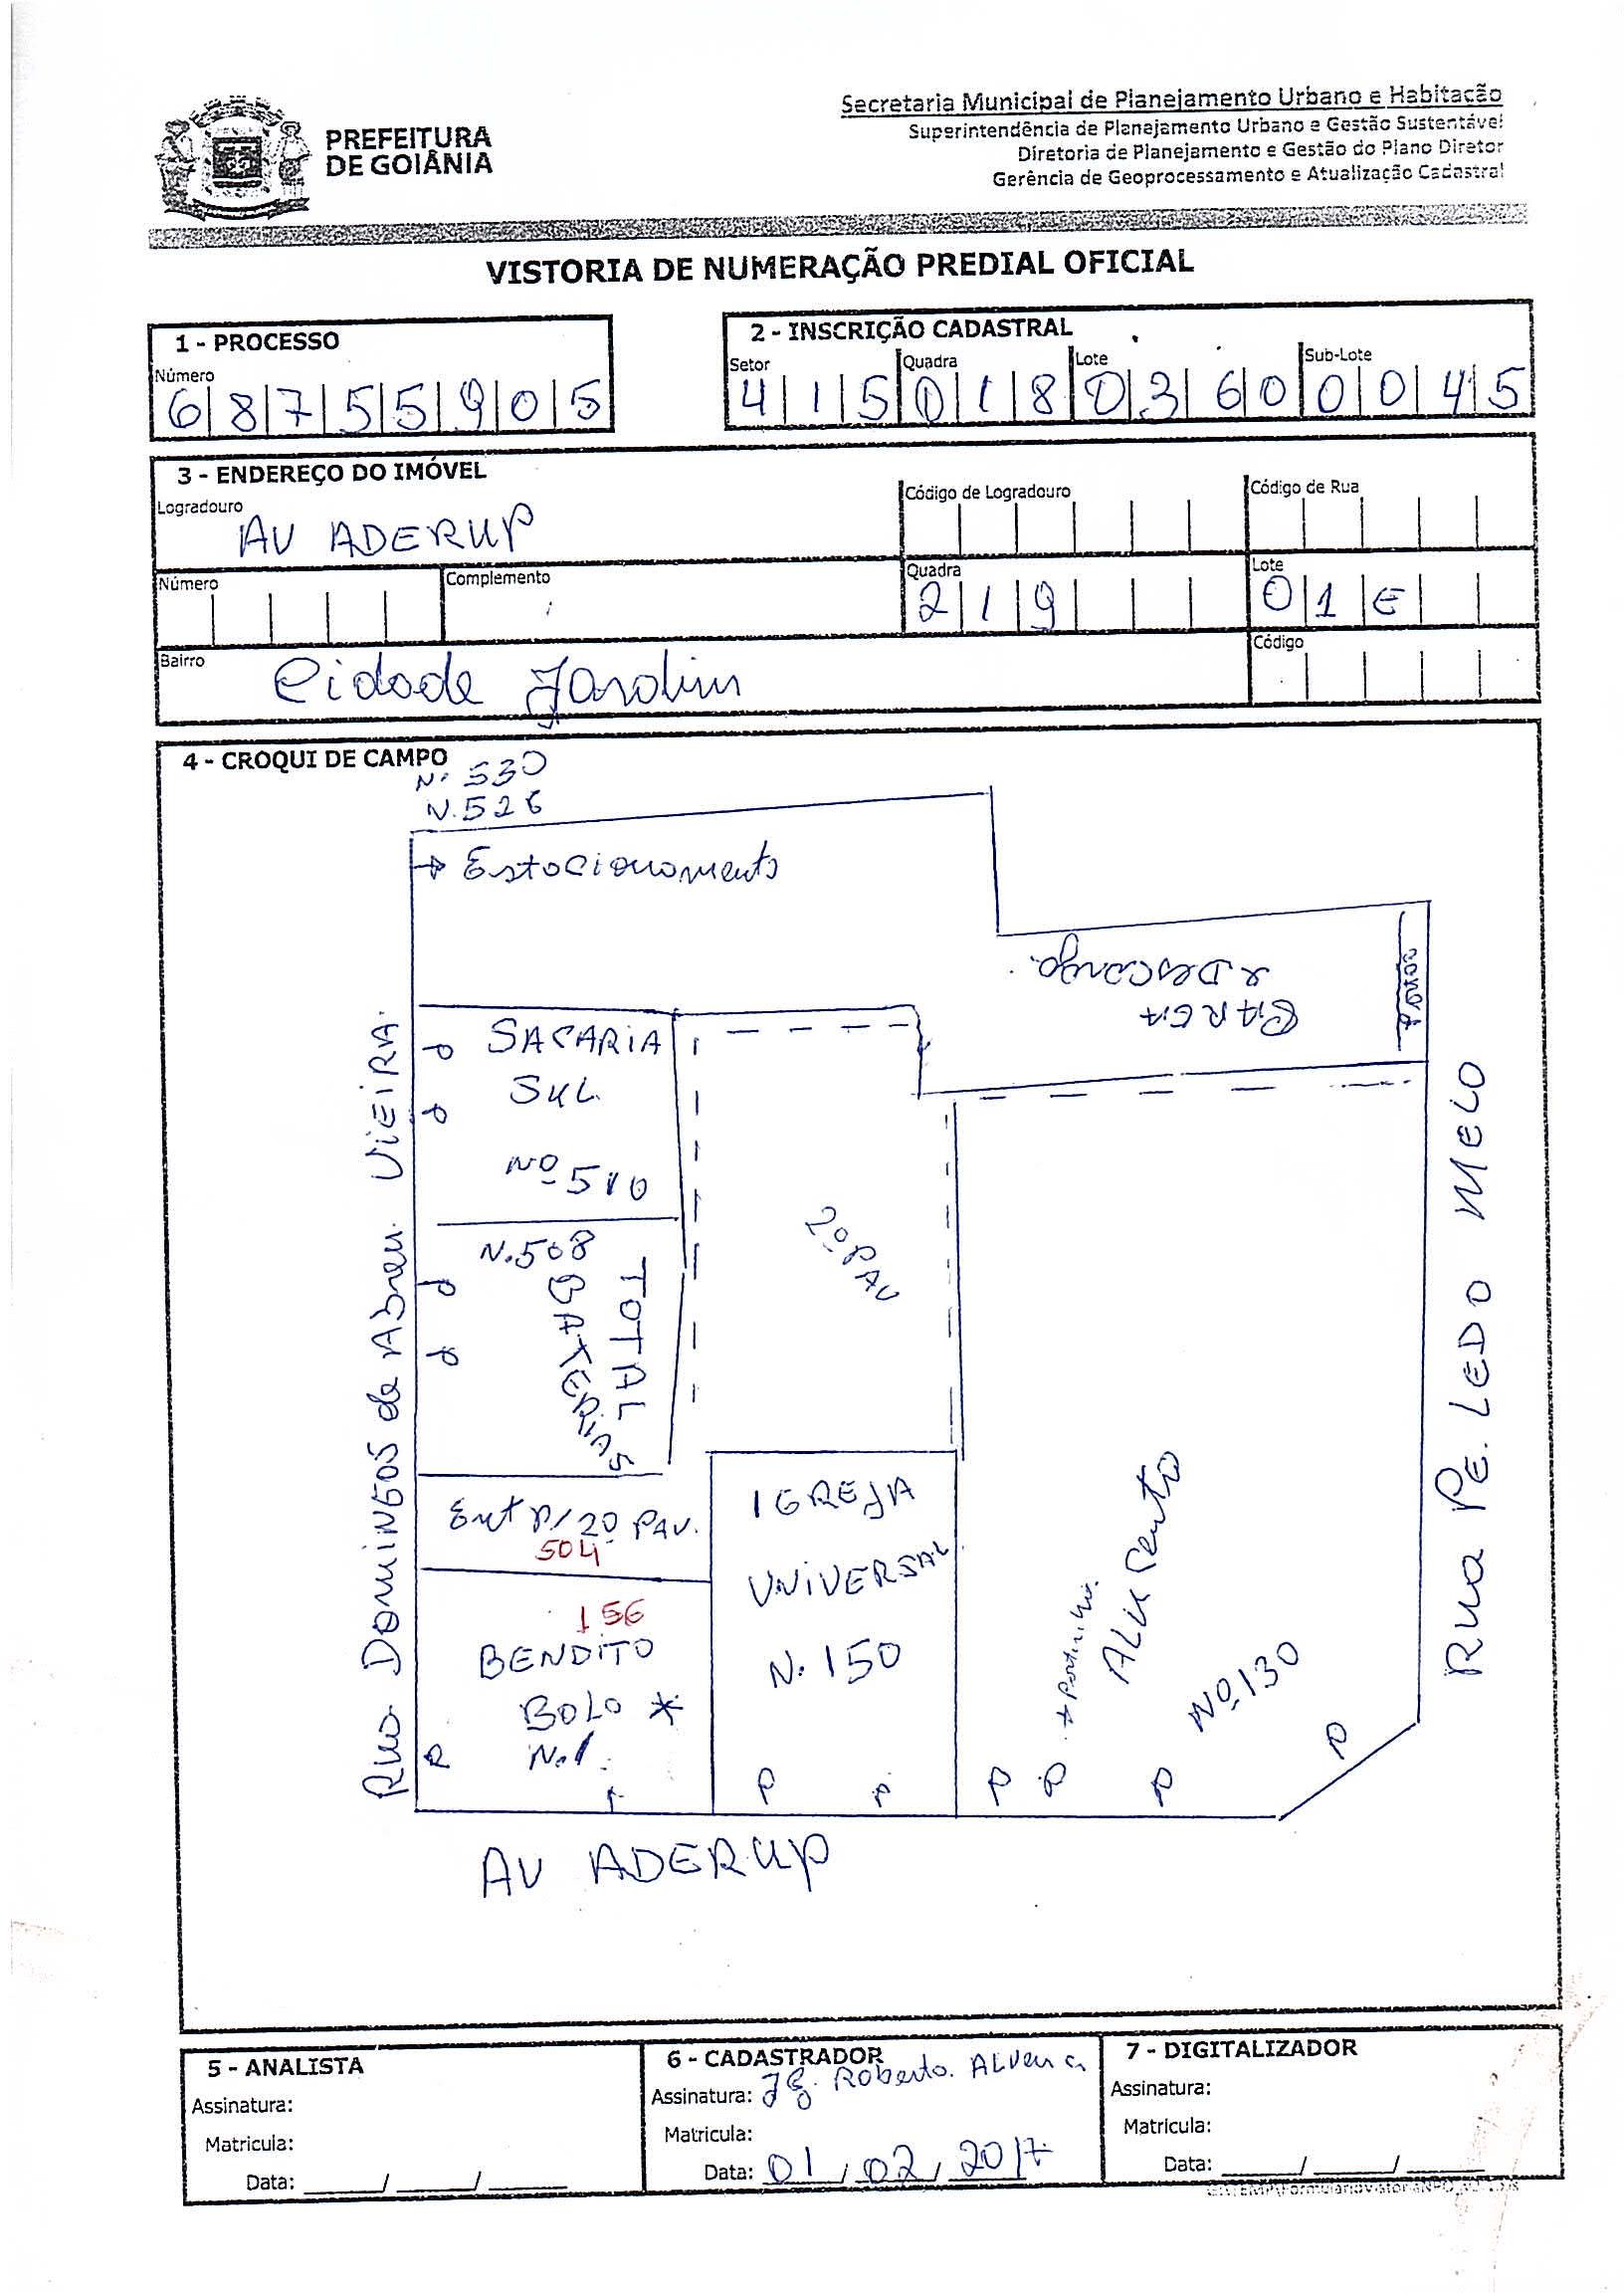 PREFEITURA
DE GOIÂNIA
Secretaria Municipal de Planejamento Urbano e Habitação
Superintendência de Planejamento Urbano e Gestão Sustentável
Diretoria de Planejamento e Gestão do Plano Diretor
Gerência de Geoprocessamento e Atualização Cadastral
VISTORIA DE NUMERAÇÃO PREDIAL OFICIAL
1 - PROCESSO
Número
68755905
2 - INSCRIÇÃO CADASTRAL
Setor Quadra Lote Sub-Lote
415 018 0360 0045
3 - ENDEREÇO DO IMÓVEL
Logradouro
AV ADERUP
Código de Logradouro
Código de Rua
Número
Complemento
Quadra
219
Lote
01E
Bairro
Cidade Jardim
Código
4 - CROQUI DE CAMPO
N. 530
N. 526
Estacionamento
CARGA
e Descarga
Portão
SACARIA
SUL
Nº 510
N. 508
TOTAL
BATERIAS
2º PAV
Ent P/ 2º PAV.
504
156
BENDITO
BOLO *
N. 1
IGREJA
UNIVERSAL
N. 150
Nº 130
P P P P P P
Rua Domingos de Abreu VIEIRA
Rua PE. LEDO MELO
AV ADERUP
5 - ANALISTA
Assinatura:
Matricula:
Data: / /
6 - CADASTRADOR
Assinatura: Roberto
Matricula:
Data: 01/02/2017
7 - DIGITALIZADOR
Assinatura:
Matricula:
Data: / /